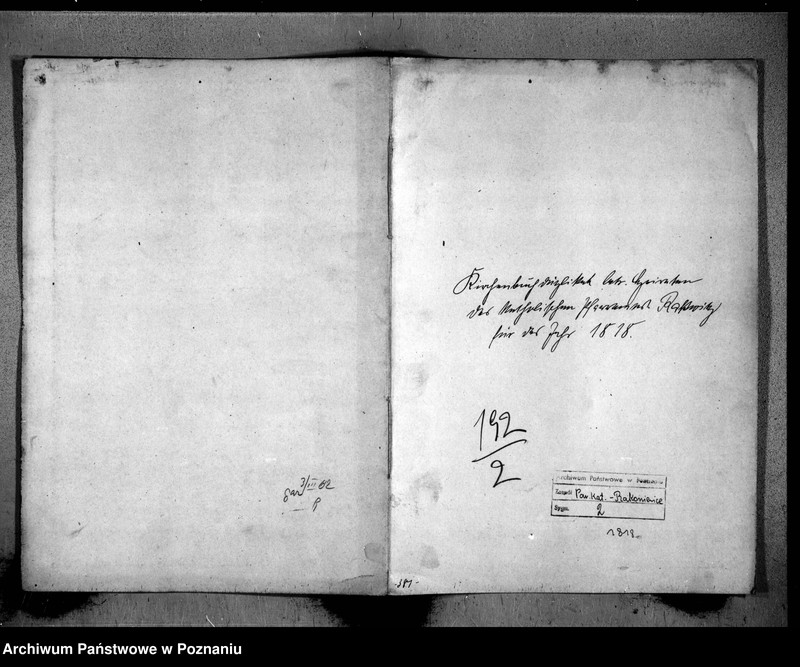 3/III 62
Kirchenbuchduplikat betr. Heiraten
des katholischen Pfarramtes Rakwitz
für das Jahr 1818.
192
2
Archiwum Państwowe w Poznaniu
Zespół Par. Kat. - Rakoniewice
Sygn. 2
1818
181
Archiwum Państwowe w Poznaniu